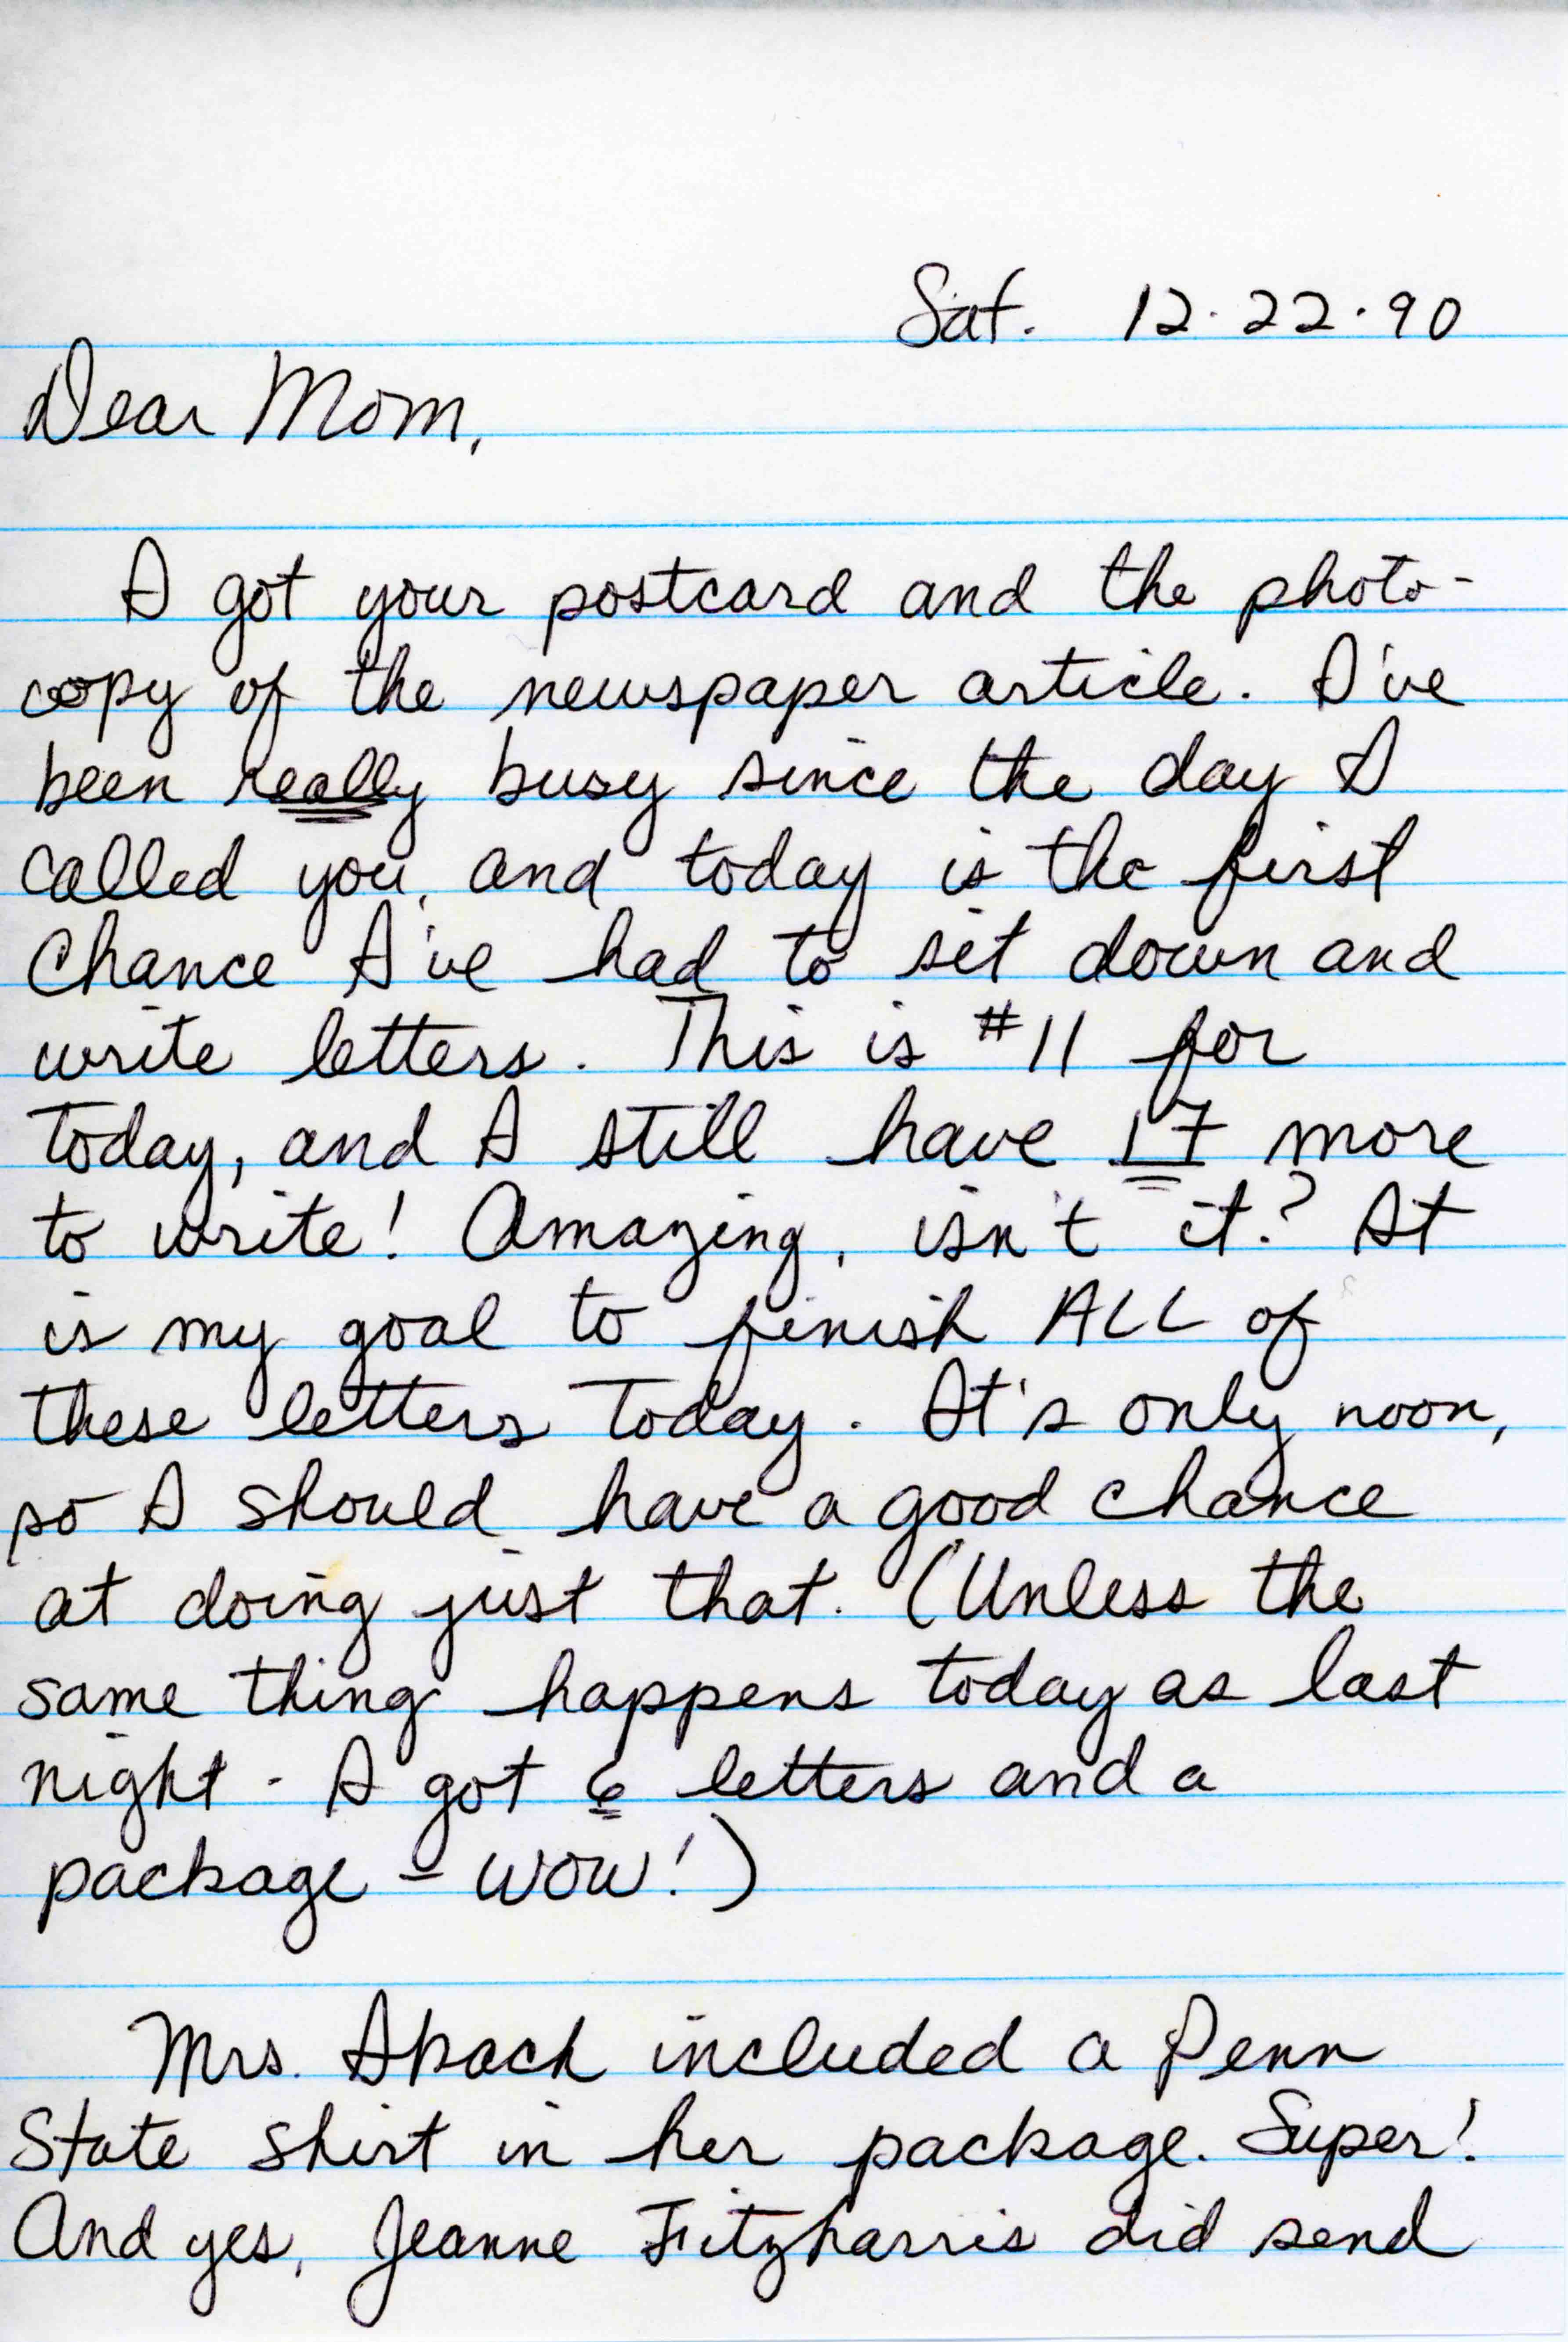 Sat. 12.22.90
Dear Mom,
I got your postcard and the photo-
copy of the newspaper article. I've
been really busy since the day I
called you, and today is the first
chance I've had to sit down and
write letters. This is #11 for
today, and I still have 17 more
to write! Amazing, isn't it? It
is my goal to finish ALL of
these letters today. It's only noon,
so I should have a good chance
at doing just that. (Unless the
same thing happens today as last
night - I got 6 letters and a
package - wow!)
Mrs. included a Penn
State shirt in her package. Super!
And yes, Jeanne Fitzharris did send